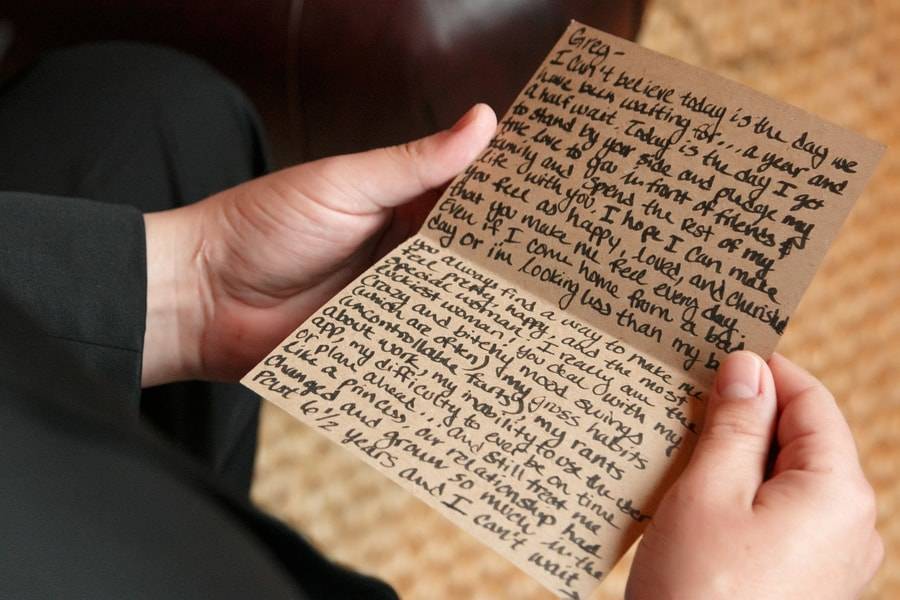 Greg-
I can't believe today is the day we
have been waiting for... a year and
a half wait. Today is the day I get
to stand by your side and pledge my
true love to you in front of friends &
family and spend the rest of my
life with you. I hope I can make
you feel as happy, loved, and cherished
that you make me feel every day.
Even if I come home from a bad
day or i'm looking less than my
you always find a way to make me
feel pretty, happy, and the most
special woman! I really am the
luckiest woman! You deal with my
crazy and bitchy mood swings
(which are often), my gross habits
(uncontrollable farts), my rants
about work, my inability to use the uber
app, my difficulty to ever be on time
or plan ahead, and still treat me
like a princess. Our relationship has
changed and grown so much in the
last 6 1/2 years and I can't wait